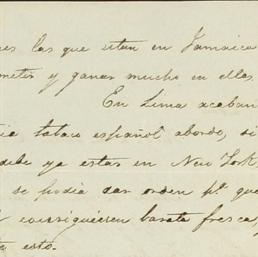 las que estan en Jamaica
meter y ganar mucho en ellas.
En Lima acaban
tabaco español abordo, si
debe ya estar en New York,
se podia dar orden pª que
consiguiesen barata fresca,
esto.